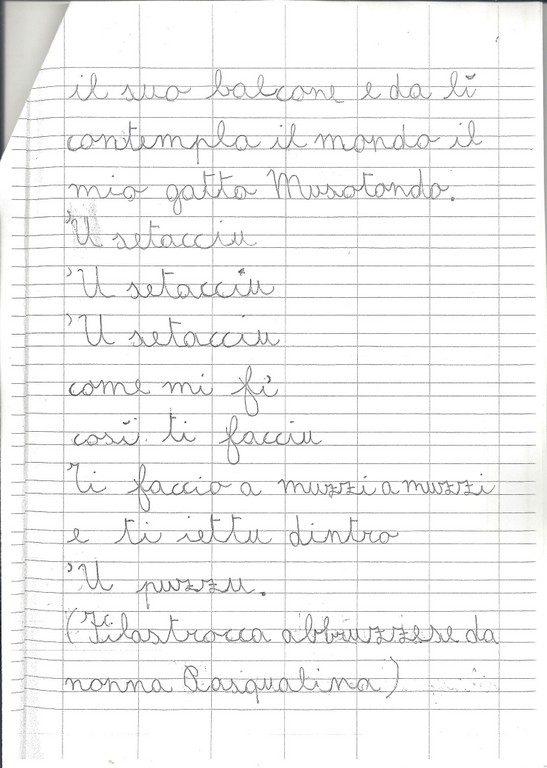 il suo balcone e da lì
contempla il mondo il
mio gatto Musotondo.
'U setacciu
'U setacciu
'U setacciu
come mi fi'
così ti facciu
Ti faccio a muzzi a muzzi
e ti iettu dintro
'U puzzu.
(Filastrocca abbruzzese da
nonna Pasqualina)